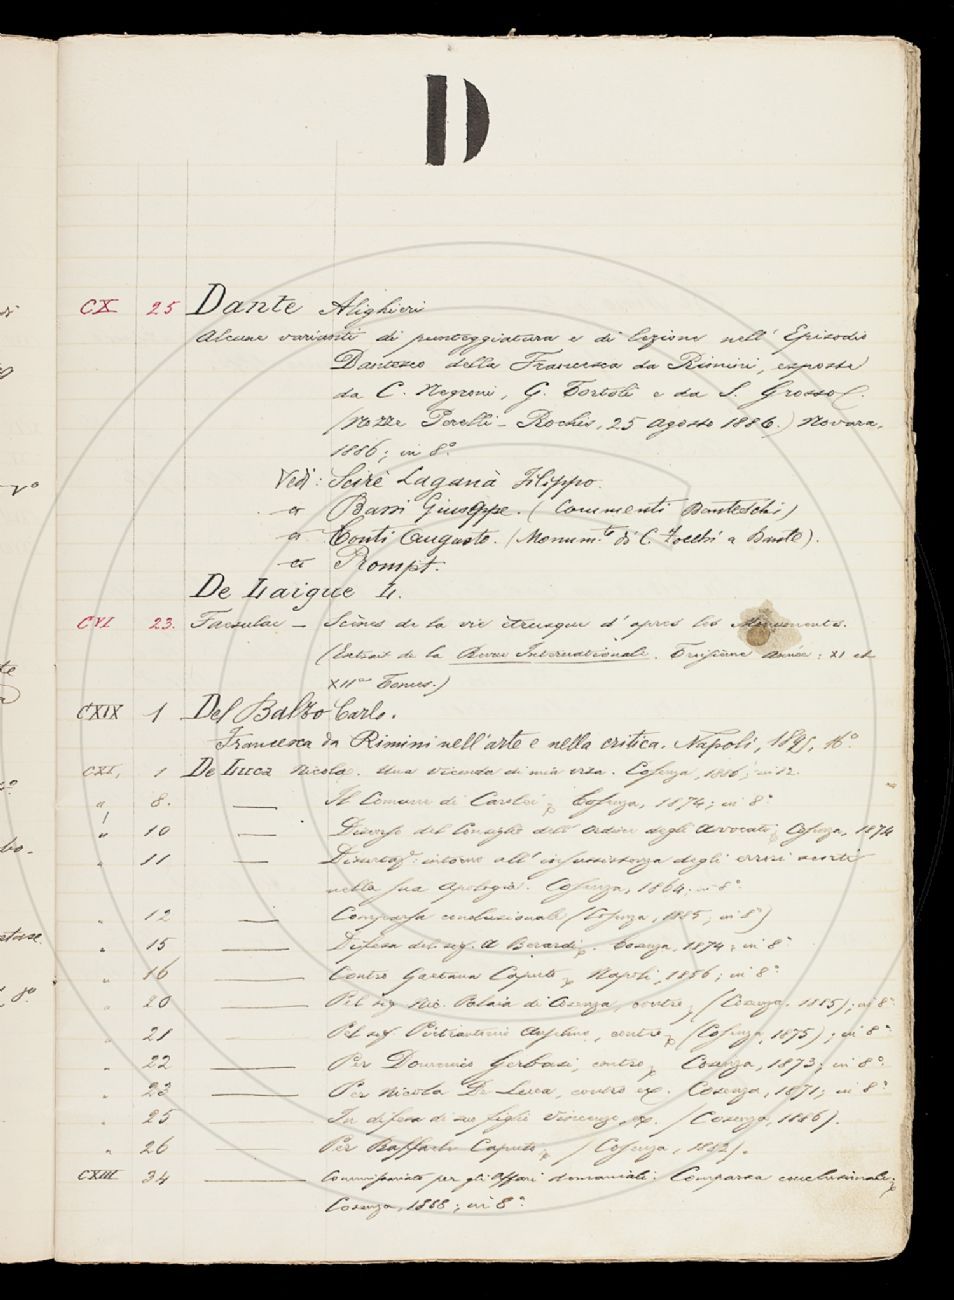 D
CX 25 Dante Alighieri
Alcune varianti di punteggiatura e di lezione nell' Episodio
Dantesco della Francesca da Rimini, esposte
da C. Negroni, G. Tortoli e da S. Grosso.
(Nozze Perelli - Rochis, 25 Agosto 1886.) Novara,
1886; in 8º.
Vedi: Scirè Laganà Filippo.
" Bassi Giuseppe. (Commenti Danteschi)
" Conti Augusto. (Monum.to di C. Zocchi a Dante).
" Prompt.
De Laigue L.
CVI 23. Faesulae - Scènes de la vie étrusque d'après les Monuments.
(Extrait de la Revue Internationale. Troisième Année: XI et
XIIme Tomes.)
CXIX 1 Del Balzo Carlo.
Francesca da Rimini nell'arte e nella critica. Napoli, 1895, 16º
CXI, 1 De Luca Nicola. Una vicenda di mia vita. Cosenza, 1886; in 12.
" 8. — Il Comune di Carolei Cosenza, 1874; in 8º
" 10 — Discorso del Consiglio dell' Ordine degli Avvocati Cosenza, 1874
" 11 — intorno all' insussistenza degli errori
nella sua Apologia. Cosenza, 1864; in 8º
" 12 — Comparsa conclusionale (Cosenza, 1885; in 8º)
" 15 — Difesa del sig. A Berardi. Cosenza, 1874; in 8º
" 16 — Contro Gaetana Caputo Napoli, 1886; in 8º
" 20 — Pel sig. Nic. di Cosenza, contro (Cosenza, 1885); in 8º
" 21 — Pel sig. Anselmo, contro (Cosenza, 1875); in 8º
" 22 — Per Domenico Gerbasi, contro Cosenza, 1873; in 8º
" 23 — Per Nicola De Luca, contro ex. Cosenza, 1871; in 8º
" 25 — In difesa di suo figlio Vincenzo, ex. (Cosenza, 1886).
" 26 — Per Raffaele Caputo (Cosenza, 1882).
CXIII 34 — Commissariato per gli Affari demaniali: Comparsa conclusionale;
Cosenza, 1888; in 8º